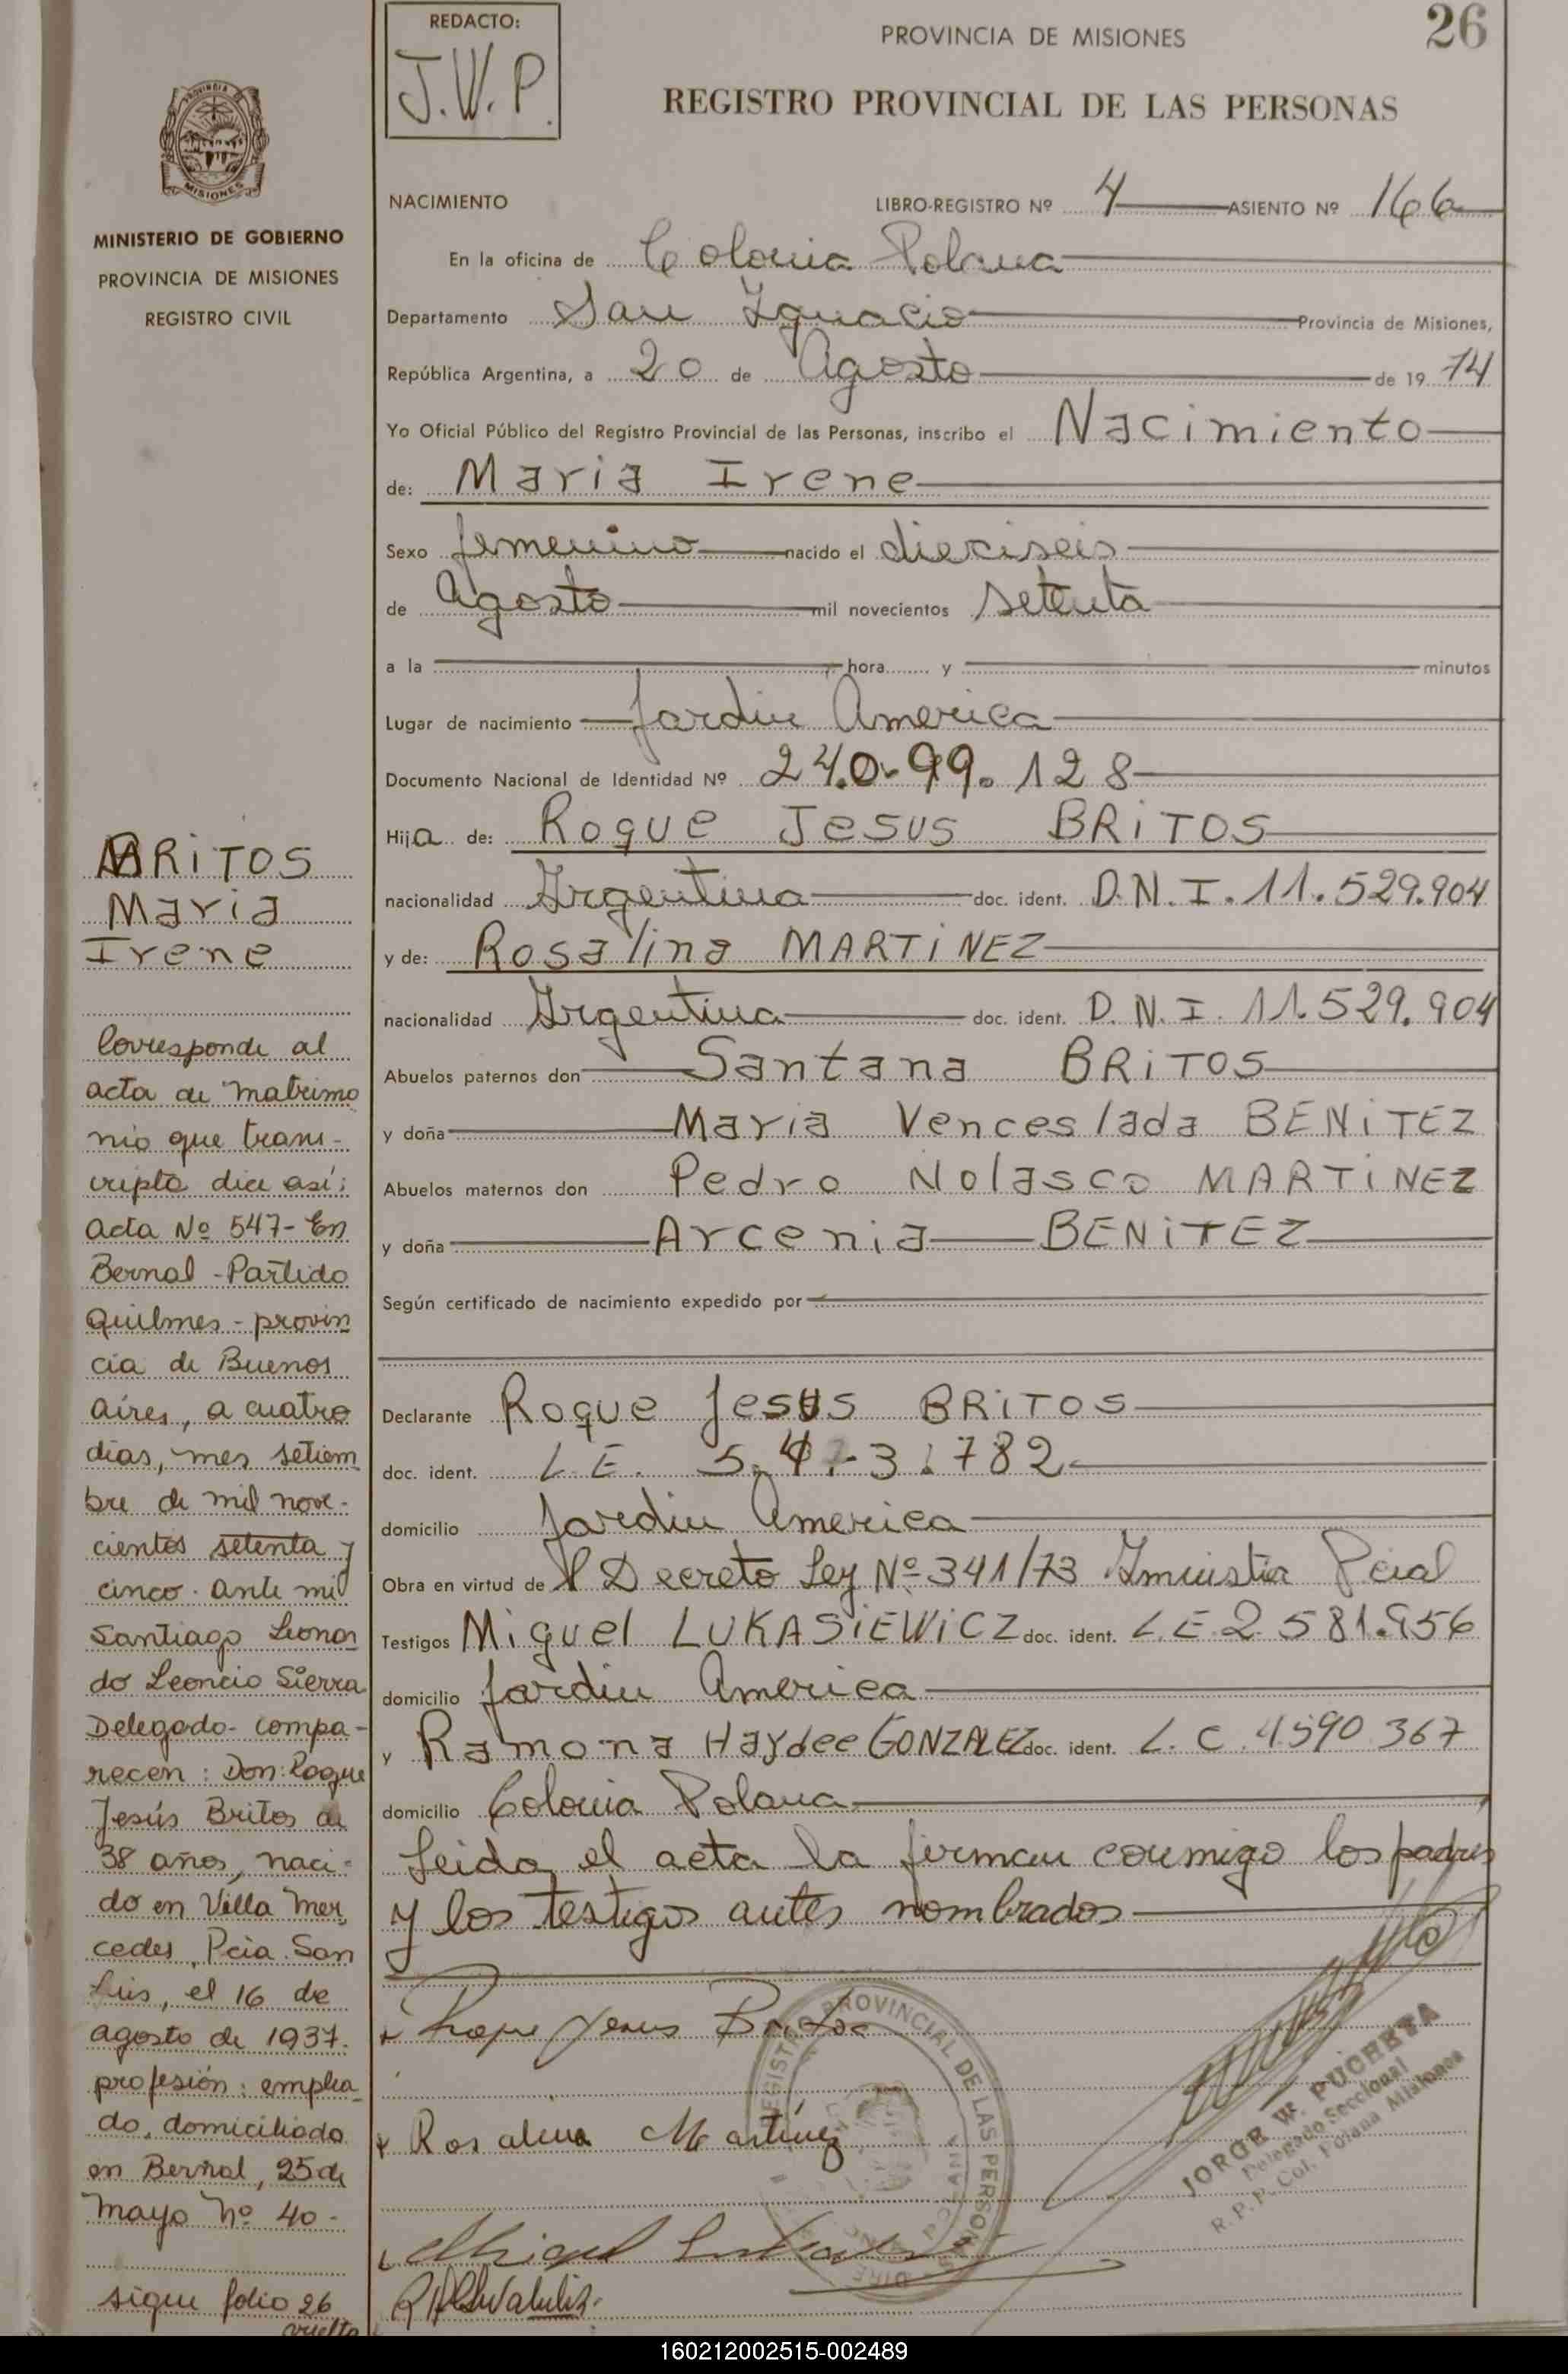 REDACTO:
J.W.P.
PROVINCIA DE MISIONES
26
REGISTRO PROVINCIAL DE LAS PERSONAS
MISIONES
MINISTERIO DE GOBIERNO
PROVINCIA DE MISIONES
REGISTRO CIVIL
BRITOS
Maria
Irene
Corresponde al
acta de matrimo
nio que trans-
cripta dice así:
Acta Nº 547- En
Bernal - Partido
Quilmes - provin
cia de Buenos
Aires, a cuatro
días, mes setiem
bre de mil nove-
cientos setenta y
cinco. Ante mí
Santiago Leonar
do Leoncio Sierra
Delegado- compa-
recen: Don: Roque
Jesús Britos de
38 años, naci-
do en Villa Mer,
cedes, Pcia. San
Luis, el 16 de
agosto de 1937.
profesión: emplea
do, domiciliado
en Bernal, 25 de
Mayo Nº 40-
sigue folio 26
vuelta
NACIMIENTO LIBRO-REGISTRO Nº 4 ASIENTO Nº 166
En la oficina de Colonia Polana
Departamento San Ignacio Provincia de Misiones,
República Argentina, a 20 de Agosto de 19 74
Yo Oficial Público del Registro Provincial de las Personas, inscribo el Nacimiento
de: Maria Irene
Sexo femenino nacido el dieciseis
de Agosto mil novecientos setenta
a la hora y minutos
Lugar de nacimiento Jardin America
Documento Nacional de Identidad Nº 24.0-99.128
Hija de: Roque Jesus BRITOS
nacionalidad Argentina doc. ident. D.N.I. 11.529.904
y de: Rosalina MARTINEZ
nacionalidad Argentina doc. ident. D.N.I. 11.529.904
Abuelos paternos don Santana BRITOS
y doña Maria Venceslada BENITEZ
Abuelos maternos don Pedro Nolasco MARTINEZ
y doña Arcenia BENITEZ
Según certificado de nacimiento expedido por
Declarante Roque Jesus BRITOS
doc. ident. L.E.
domicilio Jardin America
Obra en virtud de Decreto Ley Nº 341/73 Amnistia Pcial
Testigos Miguel LUKASIEWICZ doc. ident. L.E. 2.581.956
domicilio Jardin America
y Ramona Haydee GONZALEZ doc. ident. L.C. 4.590.367
domicilio Colonia Polana
Leida el acta la firman conmigo los padres
y los testigos antes nombrados
Roque Jesus Britos
Rosalina Martínez
REGISTRO PROVINCIAL DE LAS PERSONAS
JORGE W. PUCHETA
Delegado Seccional
R. P. P. Col. Polana Misiones
160212002515-002489